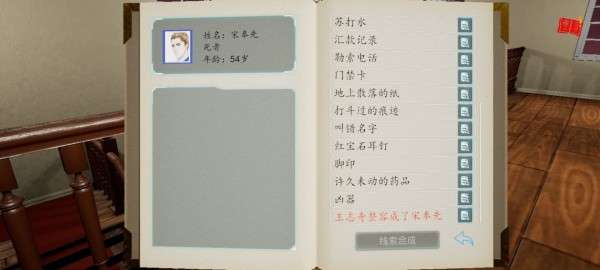 姓名：宋奉先
死者
年龄：54岁
苏打水
汇款记录
勒索电话
门禁卡
地上散落的纸
打斗过的痕迹
叫错名字
红宝石耳钉
脚印
许久未动的药品
凶器
王志奇整容成了宋奉先
线索合成